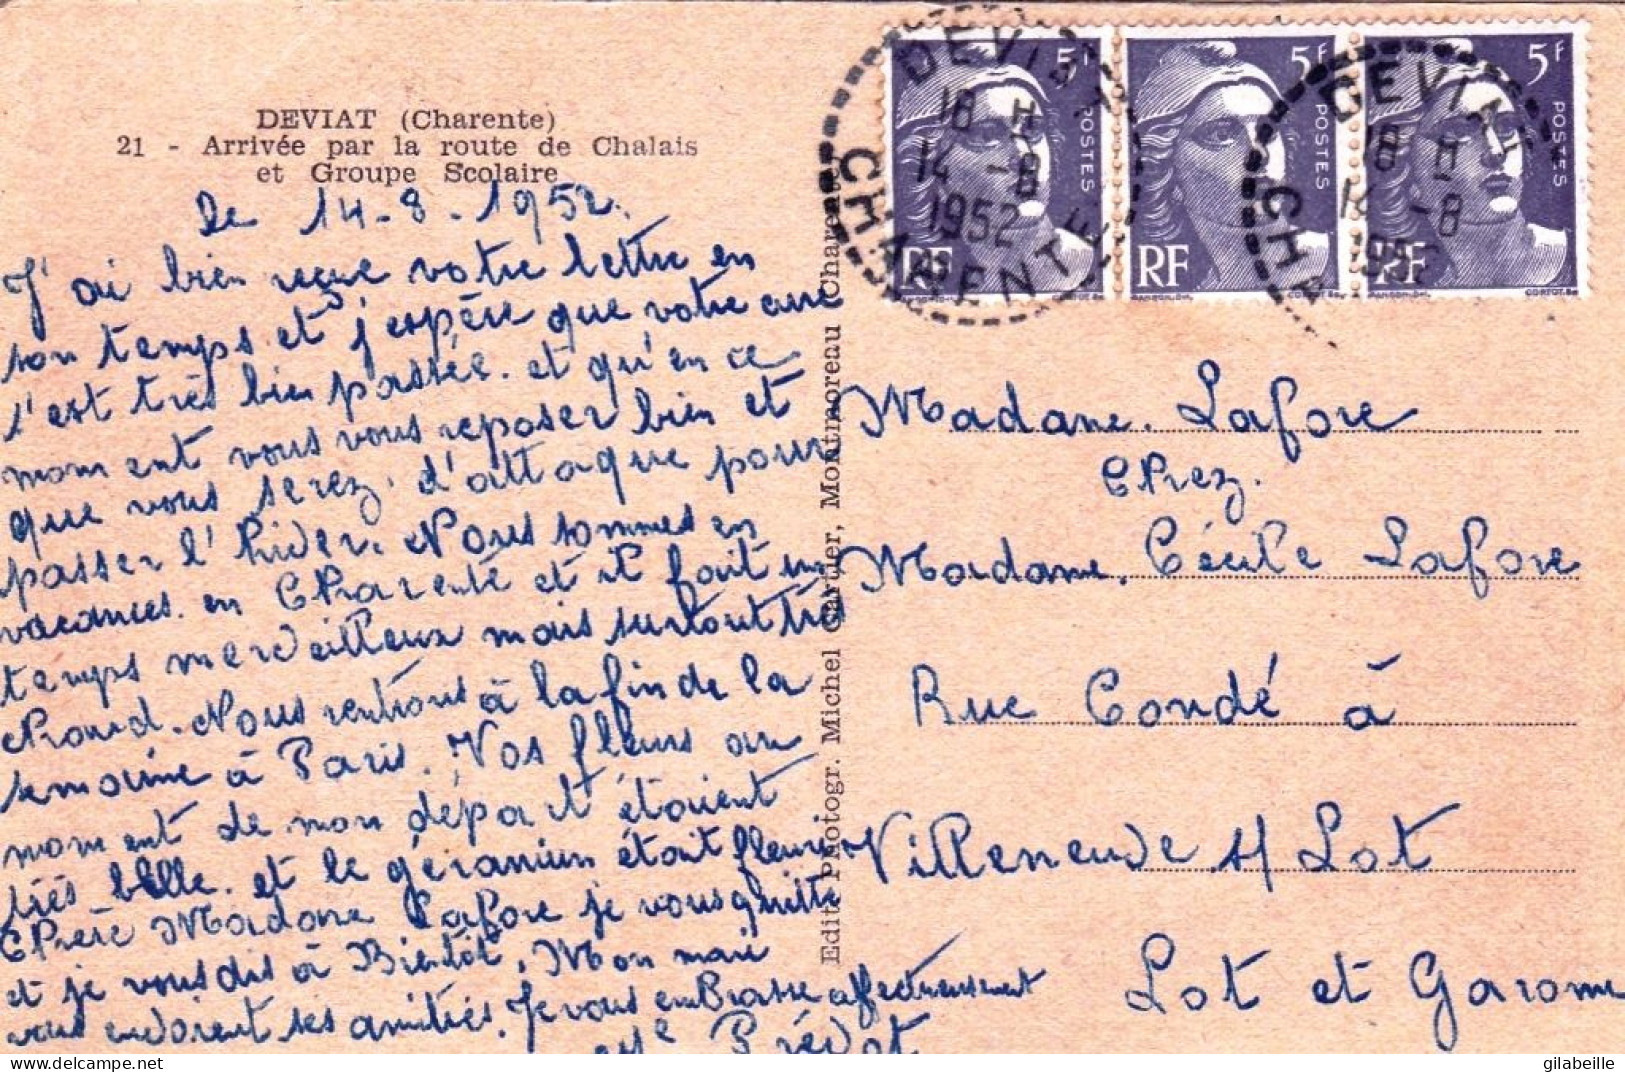 DEVIAT (Charente)
21 - Arrivée par la route de Chalais
et Groupe Scolaire
le 14-8-1952.
J'ai bien reçue votre lettre en
son temps et j'espère que votre cure
s'est très bien passée. et qu'en ce
moment vous vous reposer bien et
que vous serez d'attaque pour
passer l'hiver. Nous sommes en
vacances en Charente et il fait un
temps merveilleux mais surtout très
chaud. Nous rentrons à la fin de la
semaine à Paris. Vos fleurs au
moment de mon départ étaient
très belle. et le géranium était fleurie
Chère Madame Lafore je vous quitte
et je vous dis à Bientôt. Mon mari
vous envoient ses amitiés. Je vous embrasse affectueusement
Mme Prévot
Edit. Photogr. Michel Cartier, Montmoreau Charente
DEVIAT
18 H
14 -8
1952
CHARENTE
DEVIAT
18 H
14 -8
1952
CHA
5F
POSTES
RF
5F
POSTES
RF
CORTOT.Sc
5F
POSTES
RF
CORTOT.Sc
Madame. Lafore
Chez.
Madame. Cécile Lafore
Rue Condé à
Villeneuve s/ Lot
Lot et Garonne
gilabeille